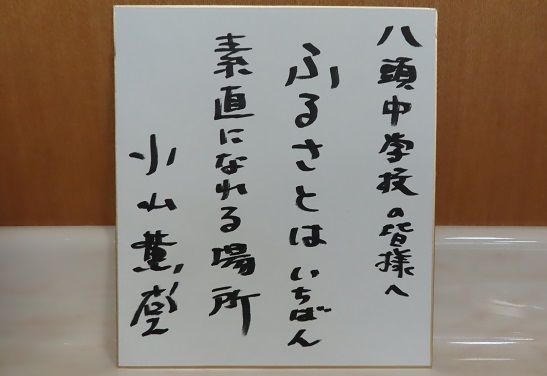 八頭中学校の皆様へ
ふるさとはいちばん
素直になれる場所
小山薫堂